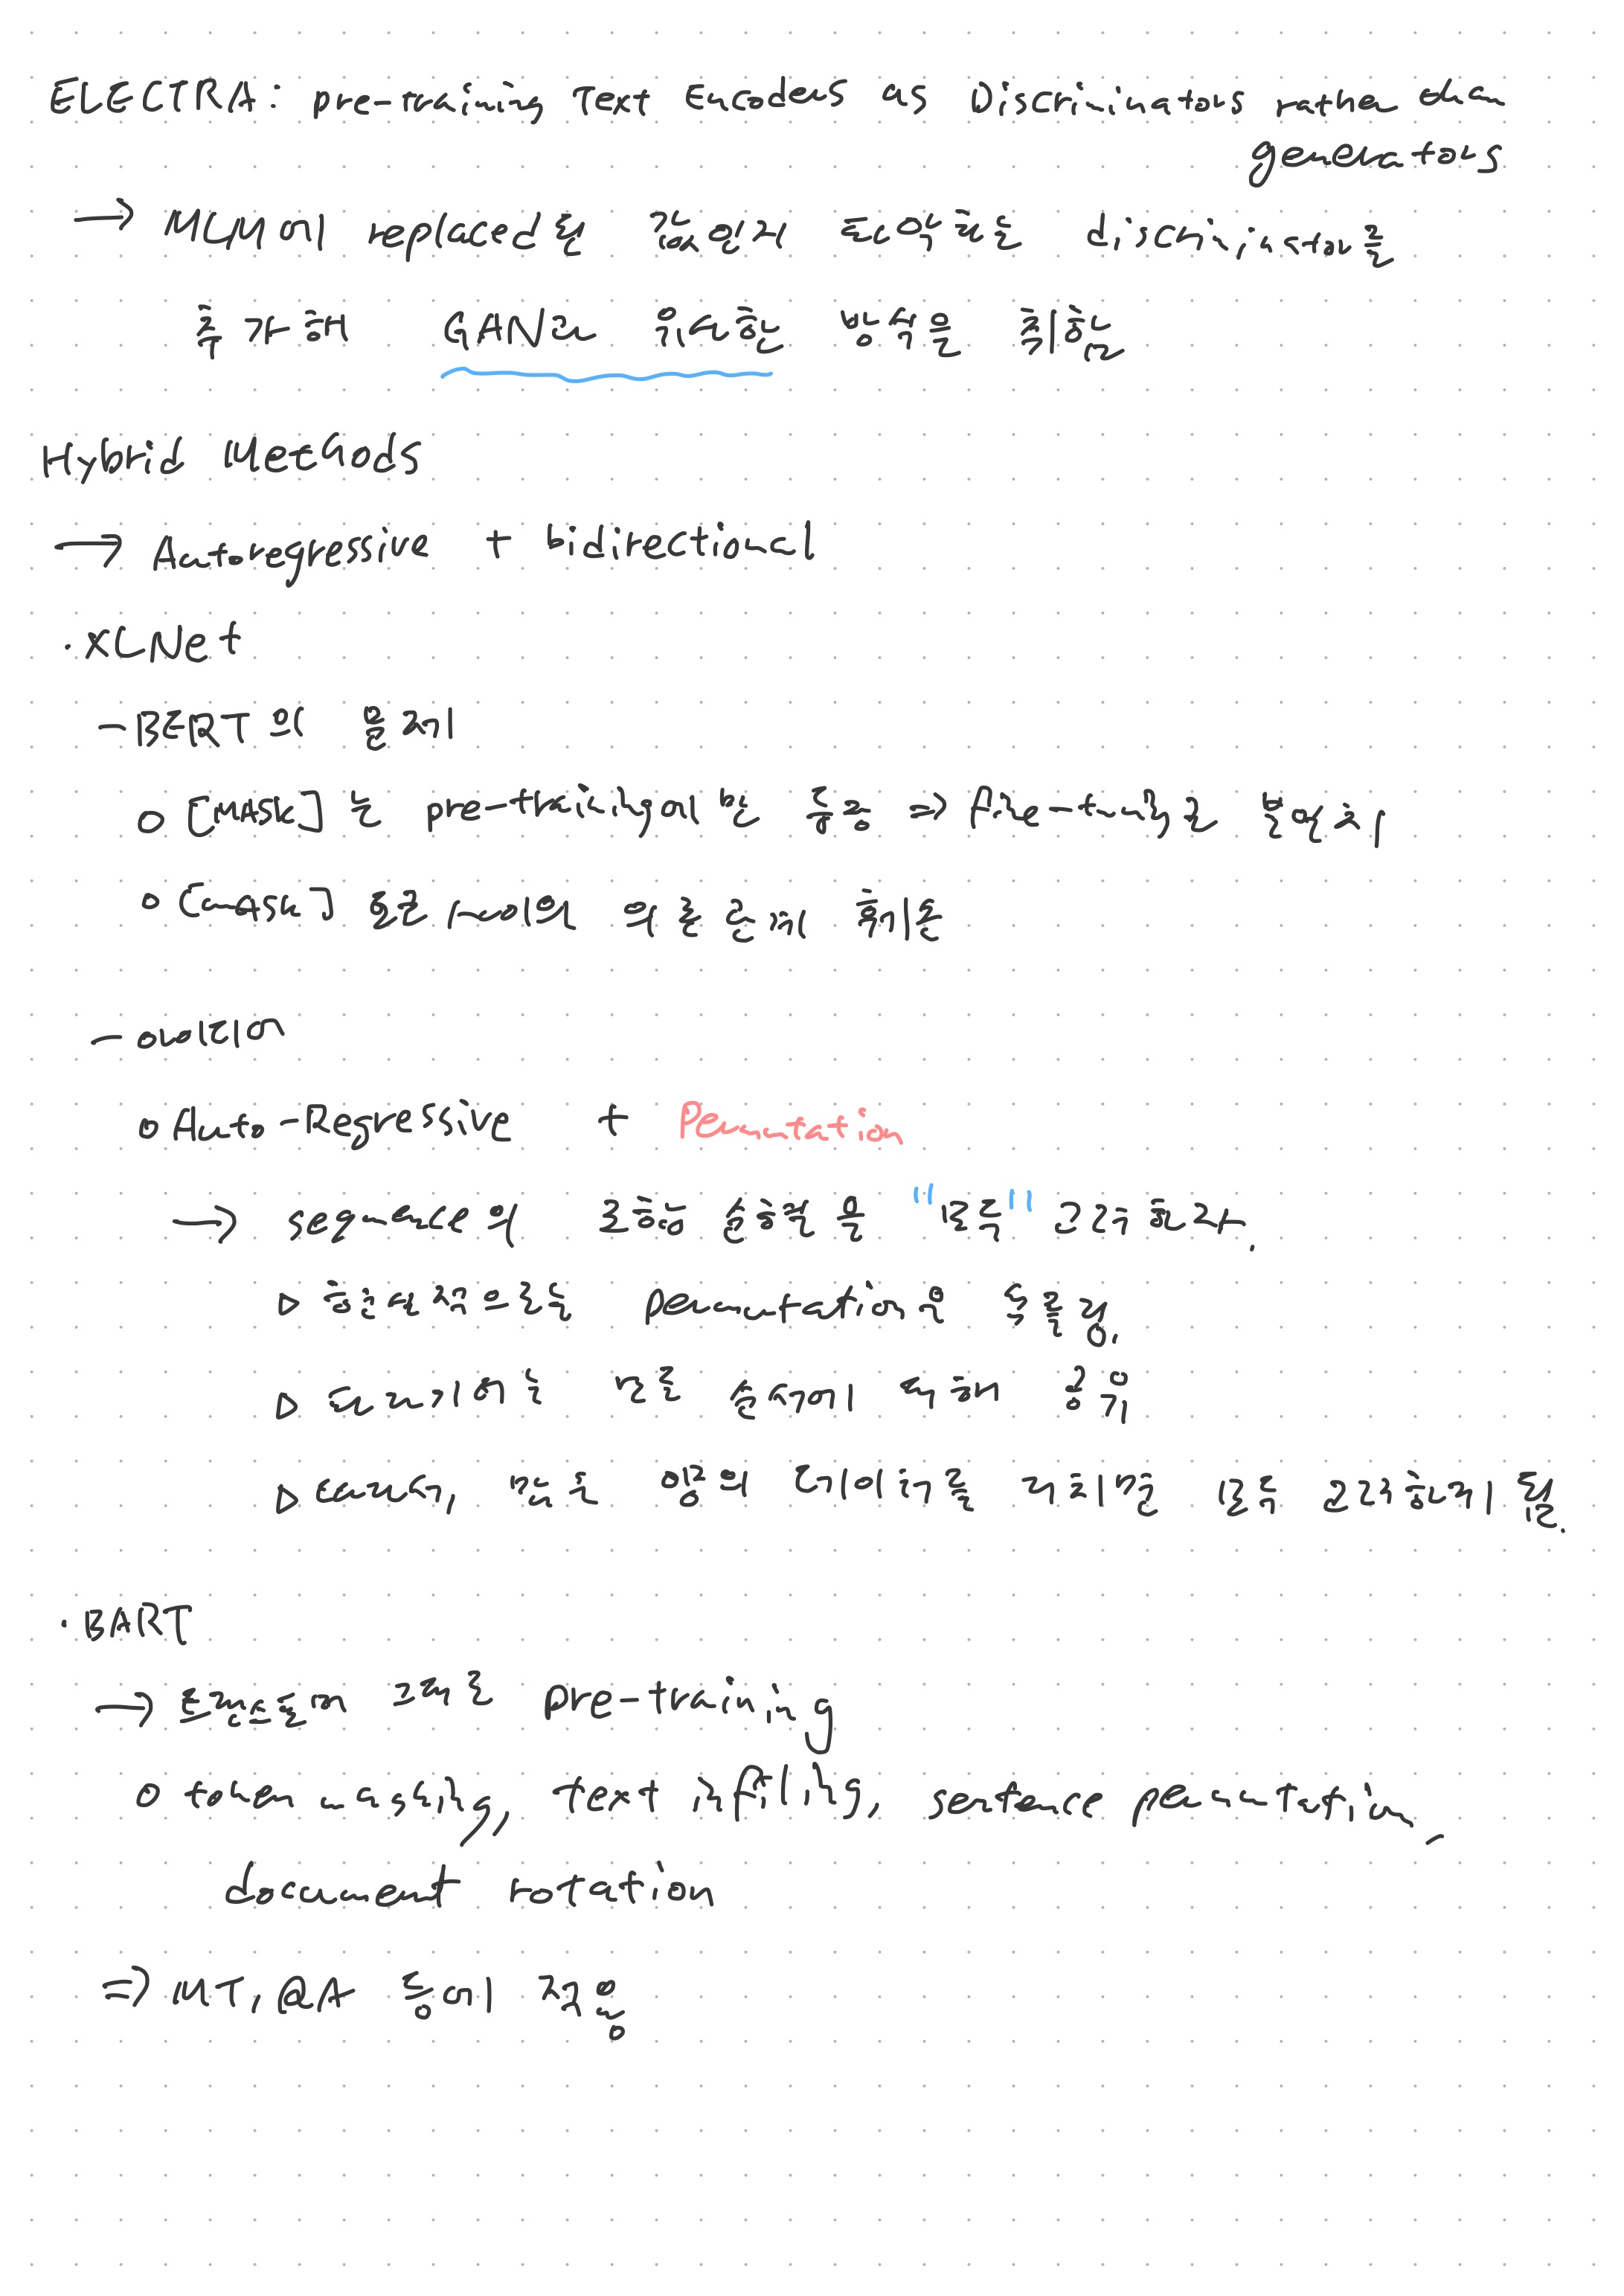 ELECTRA: pre-training Text Encoders as Discriminators rather than
generators
→ MLM에 replaced된 값인지 파악하는 discriminator를
추가해 GAN과 유사한 방식을 취함
Hybrid Methods
→ Autoregressive + bidirectional
· XLNet
- BERT의 문제
o [MASK]는 pre-training에만 등장 ⇒ fine-tuning과 불일치
o [MASK] 토큰 사이의 의존관계 학습
- 아이디어
o Auto-Regressive + Permutation
→ sequence의 조합 순열을 "모두" 고려한다.
▷ 확률적으로 permutation을 수행.
▷ 단계에는 다른 순서에 대해 공유
▷ 따라서, 많은 양의 데이터를 거치면 모두 고려하게 됨.
· BART
→ 트랜스포머 그대로 pre-training
o token masking, text infilling, sentence permutation,
document rotation
⇒ MT, QA 등에 적용